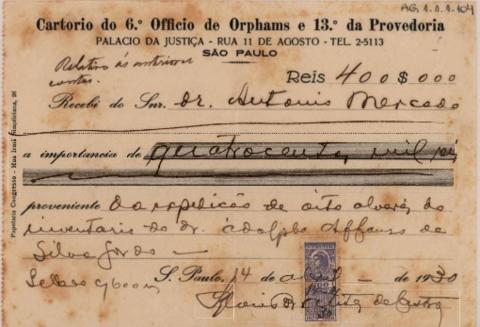 AG.1.1.1.104
Cartorio do 6.º Officio de Orphams e 13.º da Provedoria
PALACIO DA JUSTIÇA - RUA 11 DE AGOSTO - TEL. 2-5113
SÃO PAULO
Relativo as anteriores
contas.
Reis 400$000
Recebi do Snr. dr. Antonio Mercado
a importancia de quatrocentos mil reis
proveniente da expedição de oito alvarás do
inventario do dr. Adolpho Affonso da
Silva Gordo
Sellos
S. Paulo, 14 de abril de 1930
de Castro
Papelaria Congresso - Rua